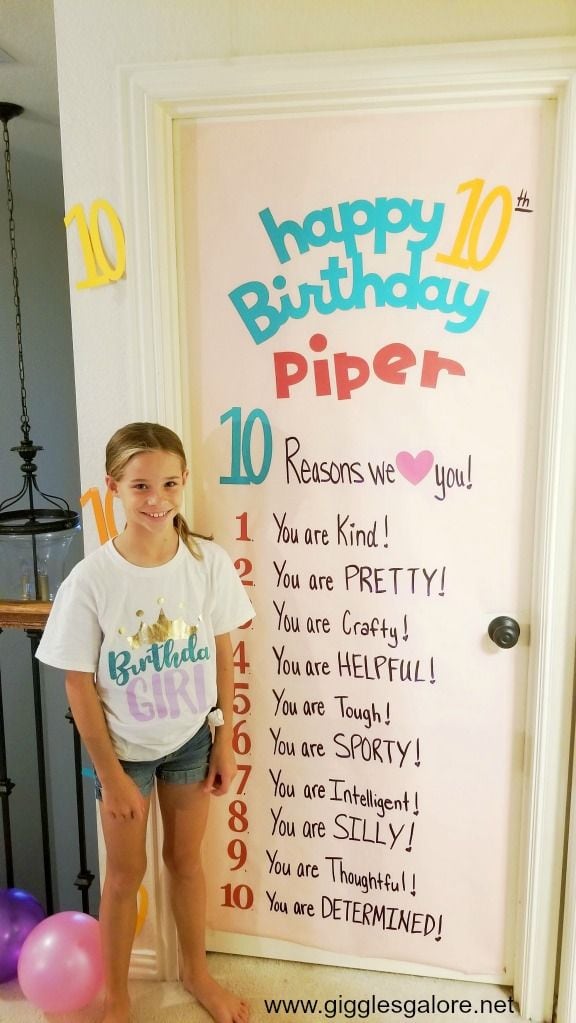 10
happy 10th
Birthday
Piper
10 Reasons we you!
10
1 You are Kind!
2 You are PRETTY!
You are Crafty!
4 You are HELPFUL!
5 You are Tough!
6 You are SPORTY!
7 You are Intelligent!
8 You are SILLY!
9 You are Thoughtful!
10 You are DETERMINED!
Birthda
GIRL
www.gigglesgalore.net